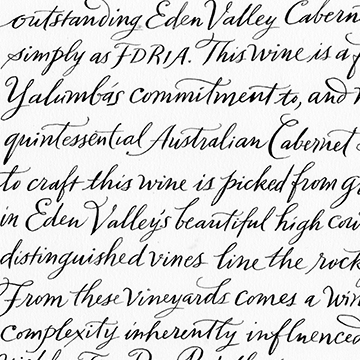 outstanding Eden Valley Cabern
simply as FDR1A. This wine is a f
Yalumba's commitment to, and
quintessential Australian Cabernet
to craft this wine is picked from g
in Eden Valley's beautiful high cou
distinguished vines line the rock
From these vineyards comes a win
complexity inherently influenced